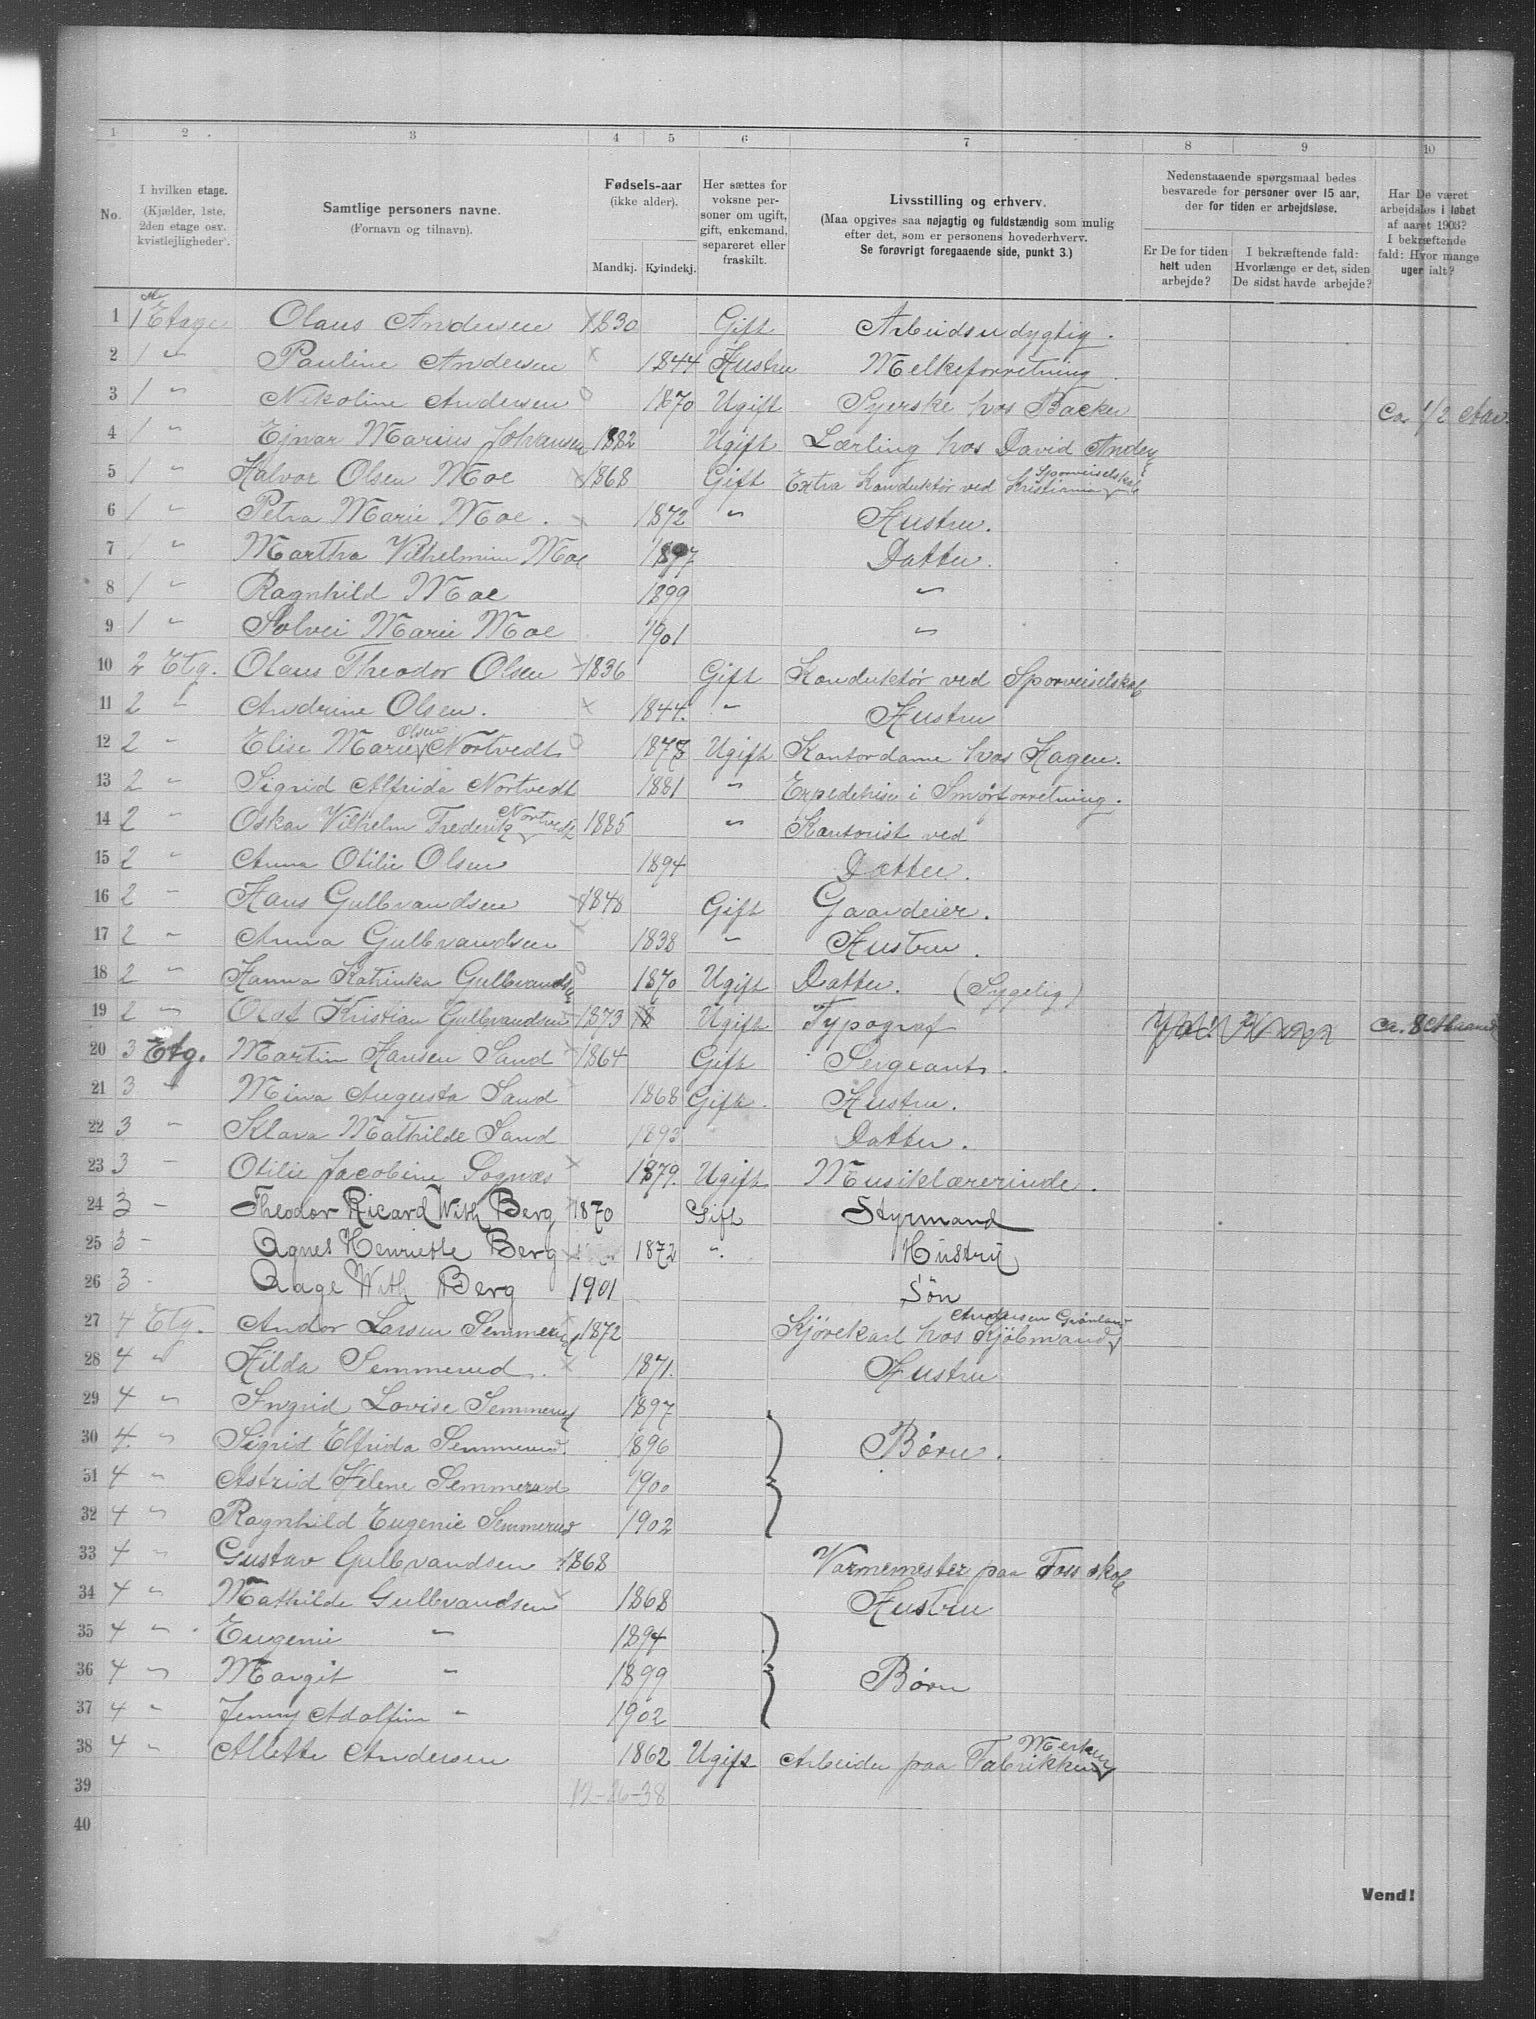 1 2 3 4 5 6 7 8 9 10
No. I hvilken etage. (Kjælder, 1ste, 2den etage osv. kvistlejligheder). Samtlige personers navne. (Fornavn og tilnavn). Fødsels-aar (ikke alder). Mandkj. Kvindekj. Her sættes for voksne personer om ugift, gift, enkemand, separeret eller fraskilt. Livsstilling og erhverv. (Maa opgives saa nøjagtig og fuldstændig som mulig efter det, som er personens hovederhverv. Se forøvrigt foregaaende side, punkt 3.) Nedenstaaende spørgsmaal bedes besvarede for personer over 15 aar, der for tiden er arbejdsløse. Er De for tiden helt uden arbejde? I bekræftende fald: Hvorlænge er det, siden De sidst havde arbejde? Har De været arbejdsløs i løbet af aaret 1903? I bekræftende fald: Hvor mange uger ialt?
1 1 Etage Olaus Andersen × 1830 Gift Arbeidsudygtig.
2 1 " Pauline Andersen × 1844 Hustru Melkeforretning
3 1 " Nikoline Andersen o 1870 Ugift Syerske hos Backer Ca. 1/2 Aar.
4 1 " Ejnar Marius Johansen 1882 Ugift Lærling hos David Andn
5 1 " Halvor Olsen Moe × 1868 Gift Extra Konduktør ved Kristiania Sporveiselskab
6 1 " Petra Marie Moe. × 1872 " Hustru.
7 1 " Martha Vilhelmine Moe 1897 Datter.
8 1 " Ragnhild Moe 1899 "
9 1 " Solvei Marie Moe 1901 "
10 2 Etg. Olaus Theodor Olsen × 1836 Gift Konduktør ved Sporveiselskab
11 2 " Andrine Olsen. × 1844. " Hustru
12 2 " Elise Marie Olsen Nortvedt o 1878 Ugift Kontordame hos Hagen.
13 2 " Sigrid Alfrida Nortvedt 1881 " Expeditrise i Smørforretning.
14 2 " Oskar Vilhelm Frederik Nortvedt 1885 " Kontorist ved
15 2 " Anna Otilie Olsen 1894 Datter.
16 2 " Hans Gulbrandsen × 1848 Gift Gaardeier.
17 2 " Anna Gulbrandsen × 1838 " Hustru.
18 2 " Hanna Katinka Gulbrandsen o 1870 Ugift Datter. (Sygelig)
19 2 " Olaf Kristian Gulbrandsen × 1873 Ugift Typograf ca. 8 Maaned
20 3 Etg. Martin Hansen Sand × 1864 Gift Sergeant.
21 3 " Mina Augusta Sand × 1868 Gift. Hustru.
22 3 " Klara Mathilde Sand 1893 Datter.
23 3 " Otilie Jacobine Sognæs × 1879. Ugift Musiklærerinde.
24 3 " Theodor Ricard With Berg × 1870 Gift Styrmand
25 3 " Agnes Henriette Berg × 1872 " Hustru
26 3 " Aage With Berg 1901 Søn
27 4 Etg. Andor Larsen Semmerud × 1872 Kjørekarl hos Kjøbmand Andersen Grønland
28 4 " Hilda Semmerud. × 1871. Hustru
29 4 " Ingrid Lovise Semmerud 1897
30 4. " Sigrid Elfrida Semmerud. 1896 Børn.
31 4 " Astrid Helene Semmerud 1900
32 4 " Ragnhild Eugenie Semmerud 1902
33 4 " Gustav Gulbrandsen × 1868 Varmemester paa Foss skole
34 4 " Mathilde Gulbrandsen × 1868 Hustru
35 4 " Eugenie " 1894
36 4 " Margit " 1899 Børn
37 4 " Jenny Adolfine " 1902
38 4 " Alette Andersen 1862 Ugift Arbeider paa Fabrikken Merkur
39 12-26-38
40
Vend!